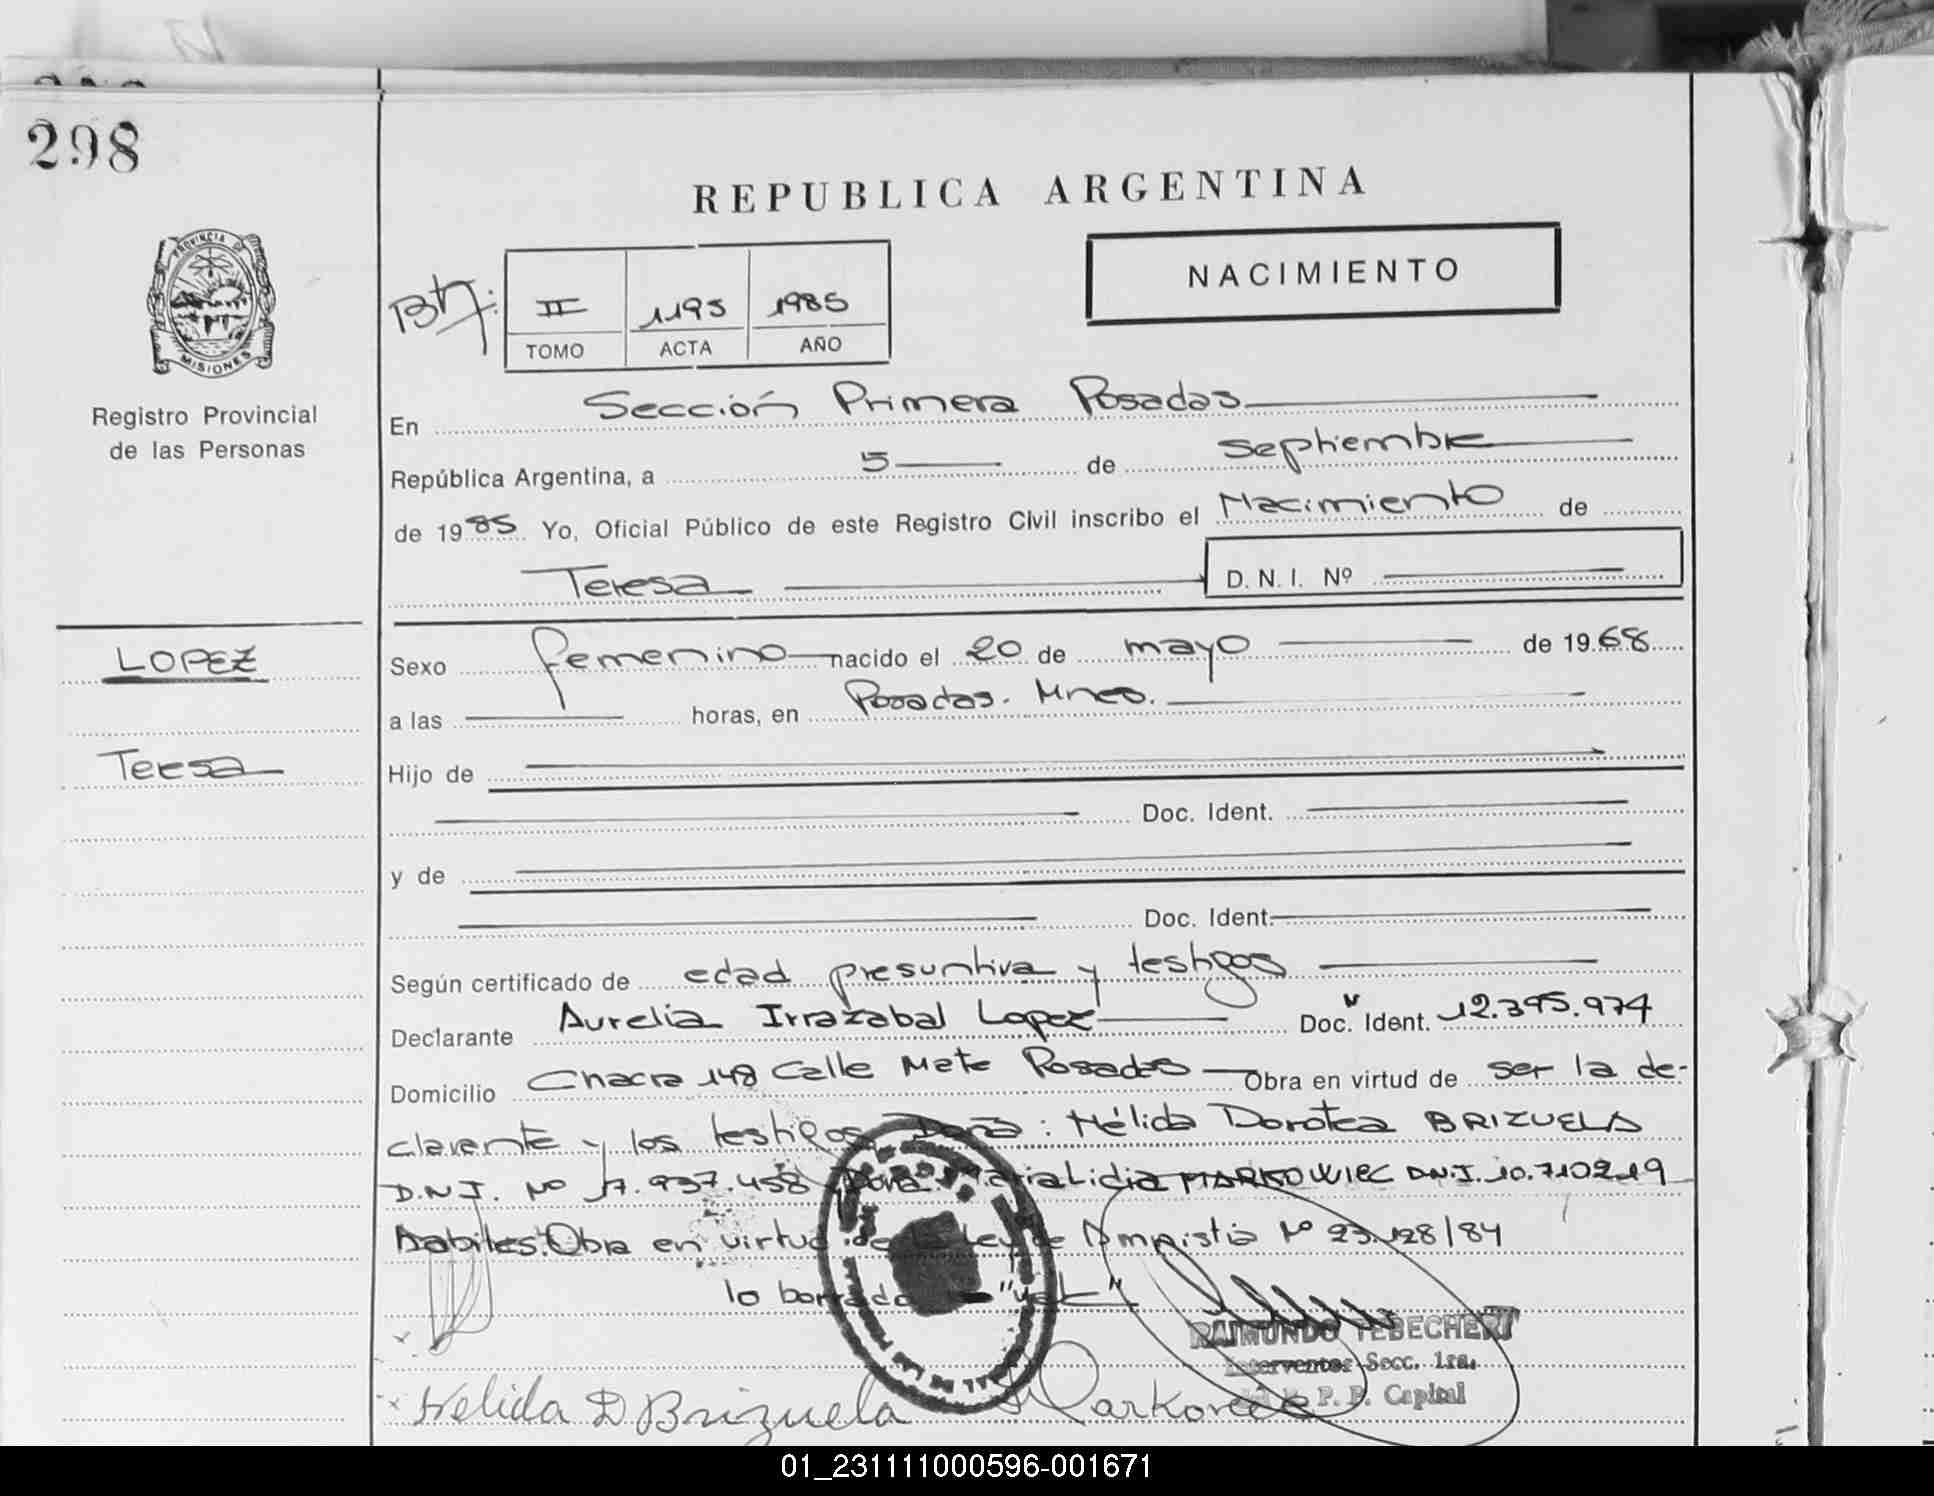 298
REPUBLICA ARGENTINA
PROVINCIA DE
MISIONES
NACIMIENTO
II 1195 1985
TOMO ACTA AÑO
Registro Provincial
de las Personas
En Sección Primera Posadas
República Argentina, a 5 de septiembre
de 1985 Yo, Oficial Público de este Registro Civil inscribo el Nacimiento de
Teresa D. N. I. Nº
LOPEZ
Teresa
Sexo femenino nacido el 20 de mayo de 1968
a las horas, en Posadas. Mnes.
Hijo de
Doc. Ident.
y de
Doc. Ident.
Según certificado de edad presuntiva y testigos
Declarante Aurelia Irrazabal Lopez Doc. Ident. 12.395.974
Domicilio Chacra 148 Calle Mate Posadas Obra en virtud de ser la de-
clarante y los testigos Doña: Nélida Dorotea BRIZUELA
D.N.I. Nº 17.937.458 Doña Maria Lidia MARKOWIEC D.N.I. 10.710219
habiles. Obra en virtud de la Ley de Amnistia Nº 23.128/84
lo borrado
RAIMUNDO TEBECHERI
Interventor Secc. 1ra.
R. P. P. Capital
Nelida D Brizuela
01_231111000596-001671